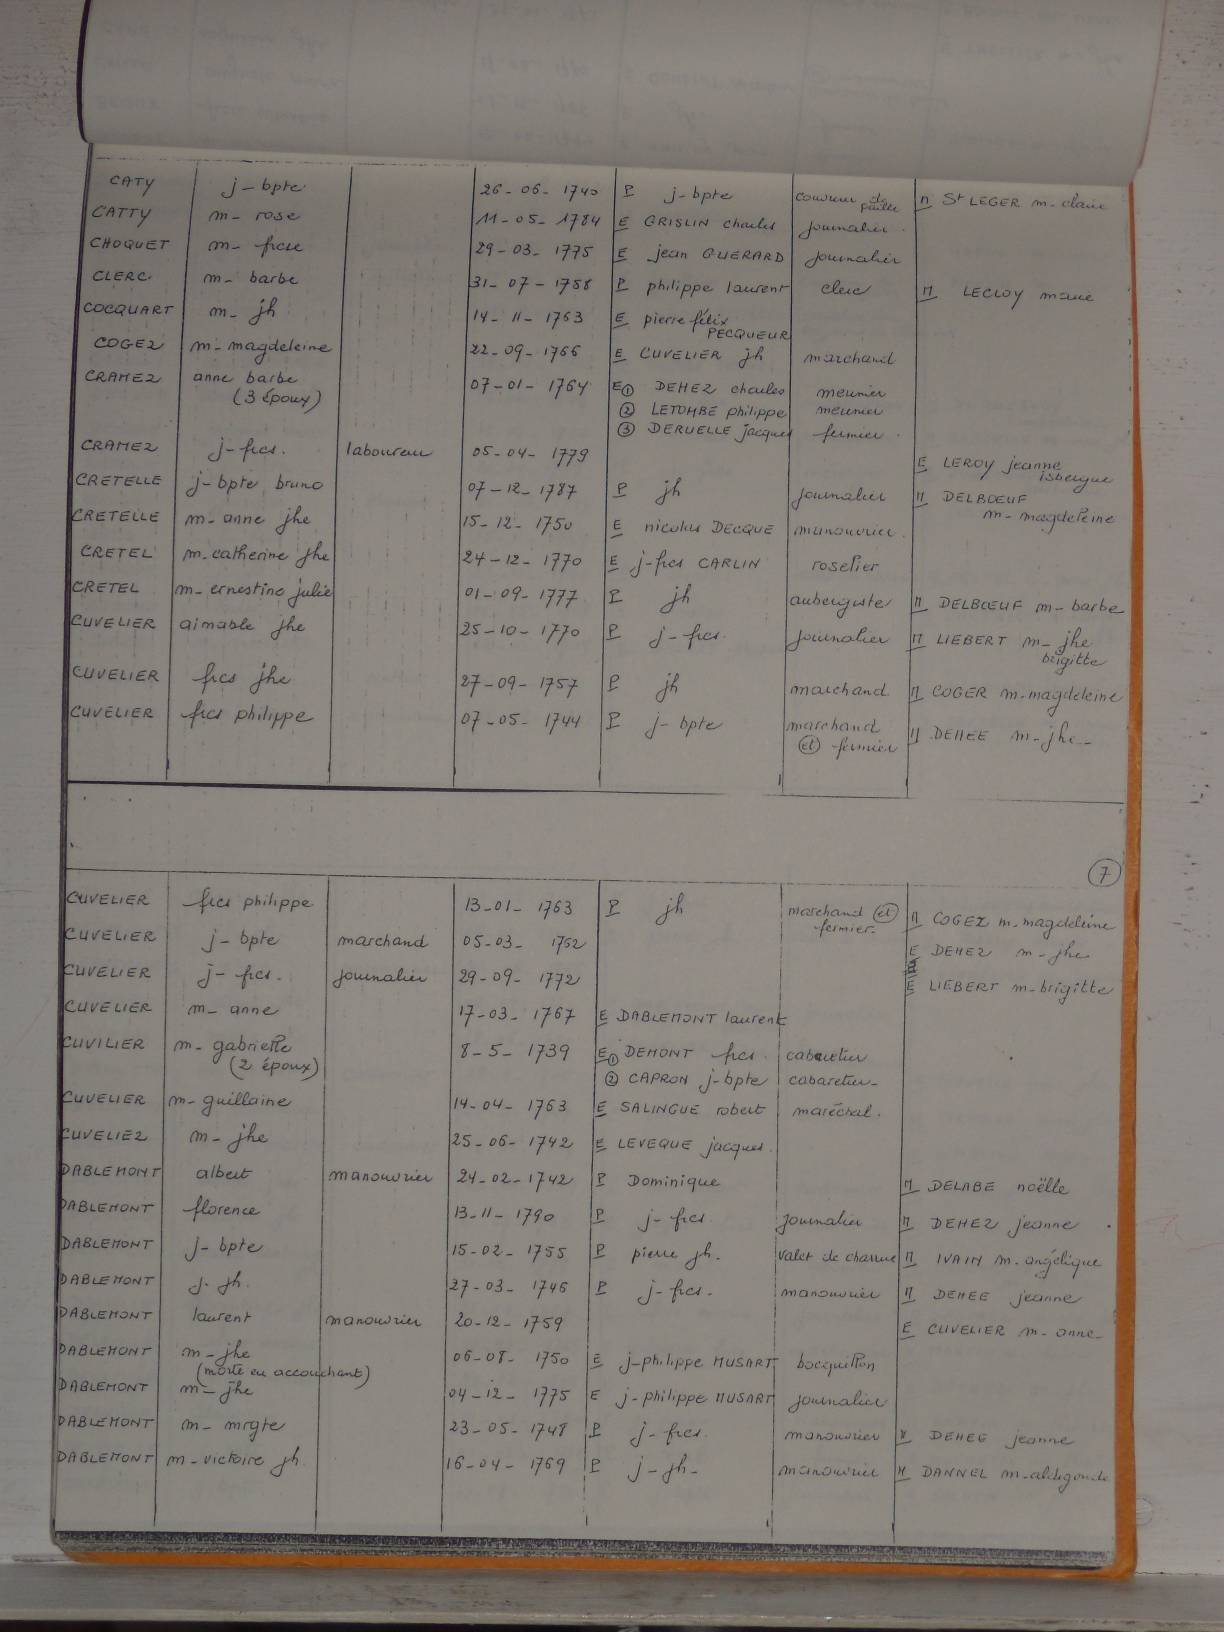 CATY j-bpte 26-06-1740 P j-bpte couvreur de paille M St LEGER m-claire
CATTY m-rose 11-05-1784 E GRISLIN charles journalier
CHOQUET m-frcse 29-03-1775 E jean GUERARD journalier
CLERC m-barbe 31-07-1758 P philippe laurent clerc M LECLOY marie
COCQUART m-jh 14-11-1763 E pierre félix
PECQUEUR
COGEZ m-magdeleine 22-09-1766 E CUVELIER jh marchand
CRAMEZ anne barbe 07-01-1764 E ① DEHEZ charles meunier
(3 époux) ② LETOMBE philippe meunier
③ DERUELLE jacques fermier
CRAMEZ j-frcs. laboureur 05-04-1779 E LEROY jeanne
isbergue
CRETELLE j-bpte bruno 07-12-1787 P jh journalier M DELBŒUF
m-magdeleine
CRETELLE m-anne jhe 15-12-1750 E nicolas DECQUE manouvrier
CRETEL m-catherine jhe 24-12-1770 E j-frcs CARLIN roselier
CRETEL m-ernestine julie 01-09-1777 P jh aubergiste M DELBŒUF m-barbe
CUVELIER aimable jhe 25-10-1770 P j-frcs. journalier M LIEBERT m-jhe
brigitte
CUVELIER frcs jhe 27-09-1757 P jh marchand M COGER m-magdeleine
CUVELIER frcs philippe 07-05-1744 P j-bpte marchand M DEHEE m-jhe-
et fermier
7
CUVELIER frcs philippe 13-01-1763 P jh marchand et M COGEZ m-magdeleine
fermier.
CUVELIER j-bpte marchand 05-03-1762 E DEHEZ m-jhe
CUVELIER j-frcs. journalier 29-09-1772 E LIEBERT m-brigitte
CUVELIER m-anne 17-03-1767 E DABLEMONT laurent
CUVILIER m-gabrielle 8-5-1739 E ① DEMONT frcs. cabaretier
(2 époux) ② CAPRON j-bpte cabaretier-
CUVELIER m-guillaine 14-04-1763 E SALINGUE robert maréchal.
CUVELIEZ m-jhe 25-06-1742 E LEVEQUE jacques.
DABLEMONT albert manouvrier 24-02-1742 P Dominique M DELABE noëlle
DABLEMONT florence 13-11-1790 P j-frcs journalier M DEHEZ jeanne
DABLEMONT j-bpte 15-02-1755 P pierre jh. valet de charrue M IVAIN m-angélique
DABLEMONT j-jh. 27-03-1746 P j-frcs. manouvrier M DEHEE jeanne
DABLEMONT laurent manouvrier 20-12-1759 E CUVELIER m-anne-
DABLEMONT m-jhe 06-08-1750 E j-philippe MUSART bocquillon
(morte en accouchant)
DABLEMONT m-jhe 04-12-1775 E j-philippe MUSART journalier
DABLEMONT m-mrgte 23-05-1748 P j-frcs. manouvrier M DEHEE jeanne
DABLEMONT m-victoire jh. 16-04-1769 P j-jh- manouvrier M DANNEL m-aldegonde